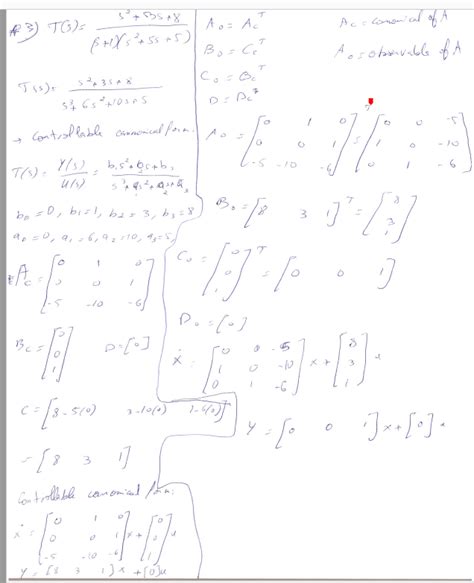 #3) T(s) = s²+3s+8
(s+1)(s²+5s+5)
T(s) = s²+3s+8
s³+6s²+10s+5
→ Controllable canonical form.
T(s) = Y(s)/U(s) =
b₀=0, b₁=1, b₂=3, b₃=8
a₀=0, a₁=6, a₂=10, a₃=5,
A_c = [0 1 0
0 0 1
-5 -10 -6]
B_c = [0
0
1] D=[0]
C = [8-5(0) 3-10(0) 1-6(0)]
= [8 3 1]
Controllable canonical form:
ẋ = [0 1 0
0 0 1
-5 -10 -6] x + [0
0
1] u
Y = [8 3 1] x + [0] u
A₀ = A_cᵀ A_c = canonical of A
B₀ = C_cᵀ A₀ = observable of A
C₀ = B_cᵀ
D = D_cᵀ
A₀ = [0 1 0
0 0 1
-5 -10 -6]ᵀ = [0 0 -5
1 0 -10
0 1 -6]
B₀ = [8 3 1]ᵀ = [8
3
1]
C₀ = [0
0
1]ᵀ = [0 0 1]
D₀ = [0]
ẋ = [0 0 -5
1 0 -10
0 1 -6] x + [8
3
1] u
Y = [0 0 1] x + [0] u